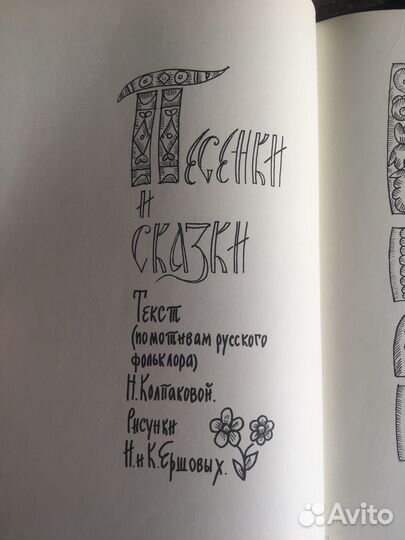 Песенки
и
сказки
Текст
(по мотивам русского
фольклора)
Н. Колпаковой.
Рисунки
И. и К. Ершовых.
Avito